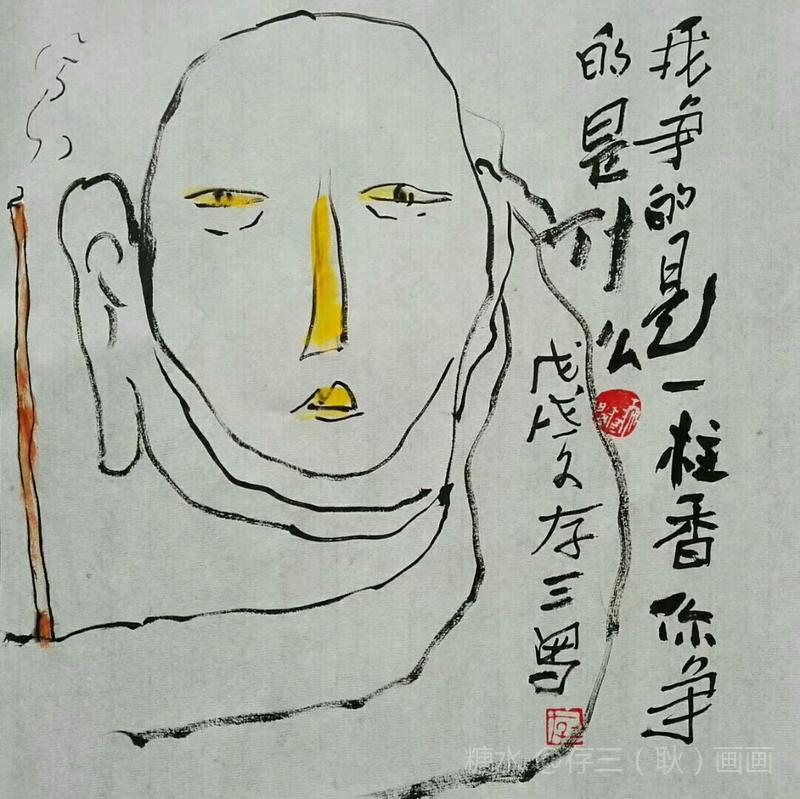 我争的是一柱香你争
的是什么
戊戌夂存三写
糖水@存三（耿）画画